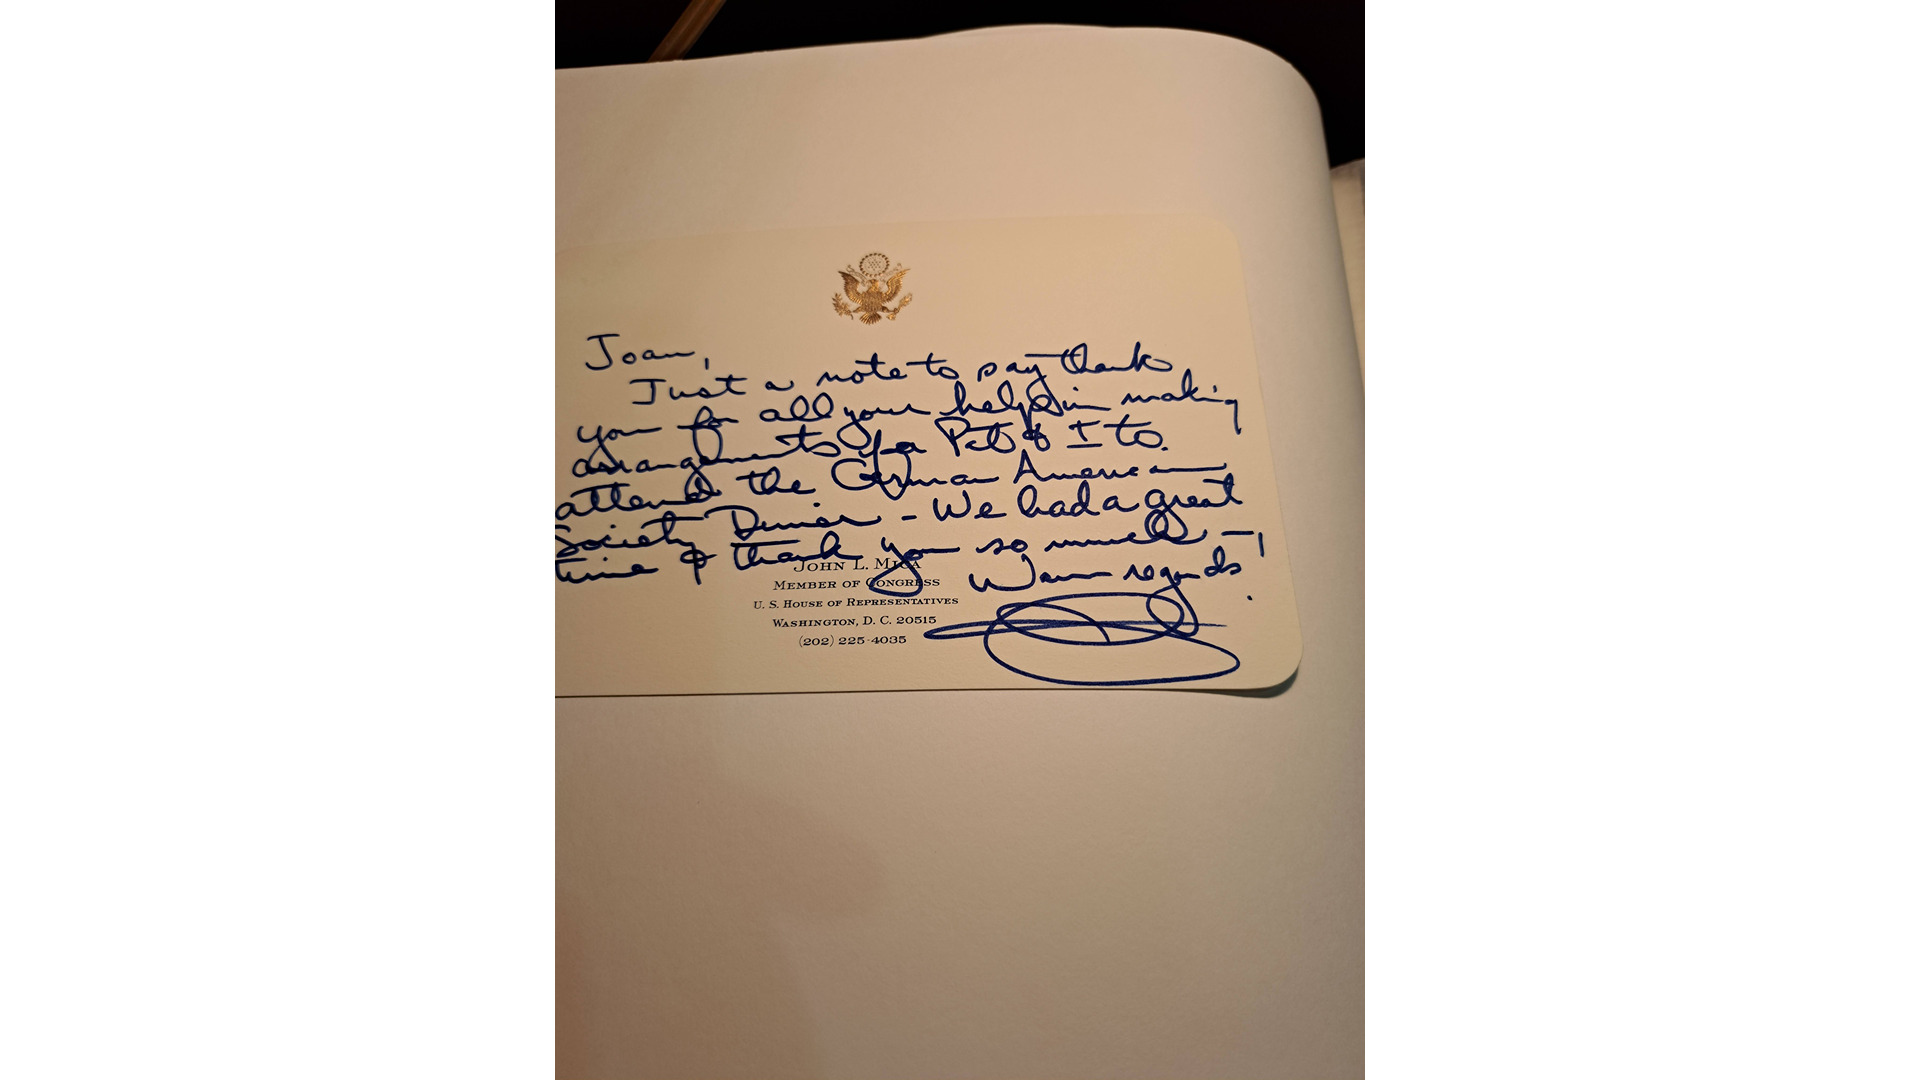 Joan,
Just a note to say thank
you for all your help in making
arrangements for Pat & I to
attend the German American
Society Dinner - We had a great
time & thank you so much -!
Warm regards
JOHN L. MICA
MEMBER OF CONGRESS
U. S. HOUSE OF REPRESENTATIVES
WASHINGTON, D. C. 20515
(202) 225-4035